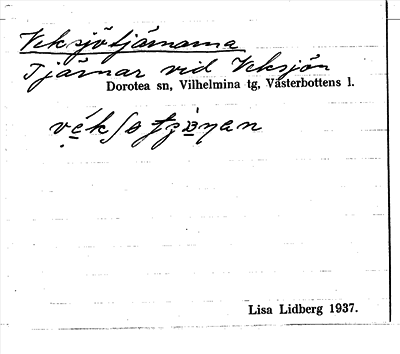 Veksjötjärnarna
Tjärnar vid Veksjön
Dorotea sn, Vilhelmina tg, Västerbottens l.
Lisa Lidberg 1937.